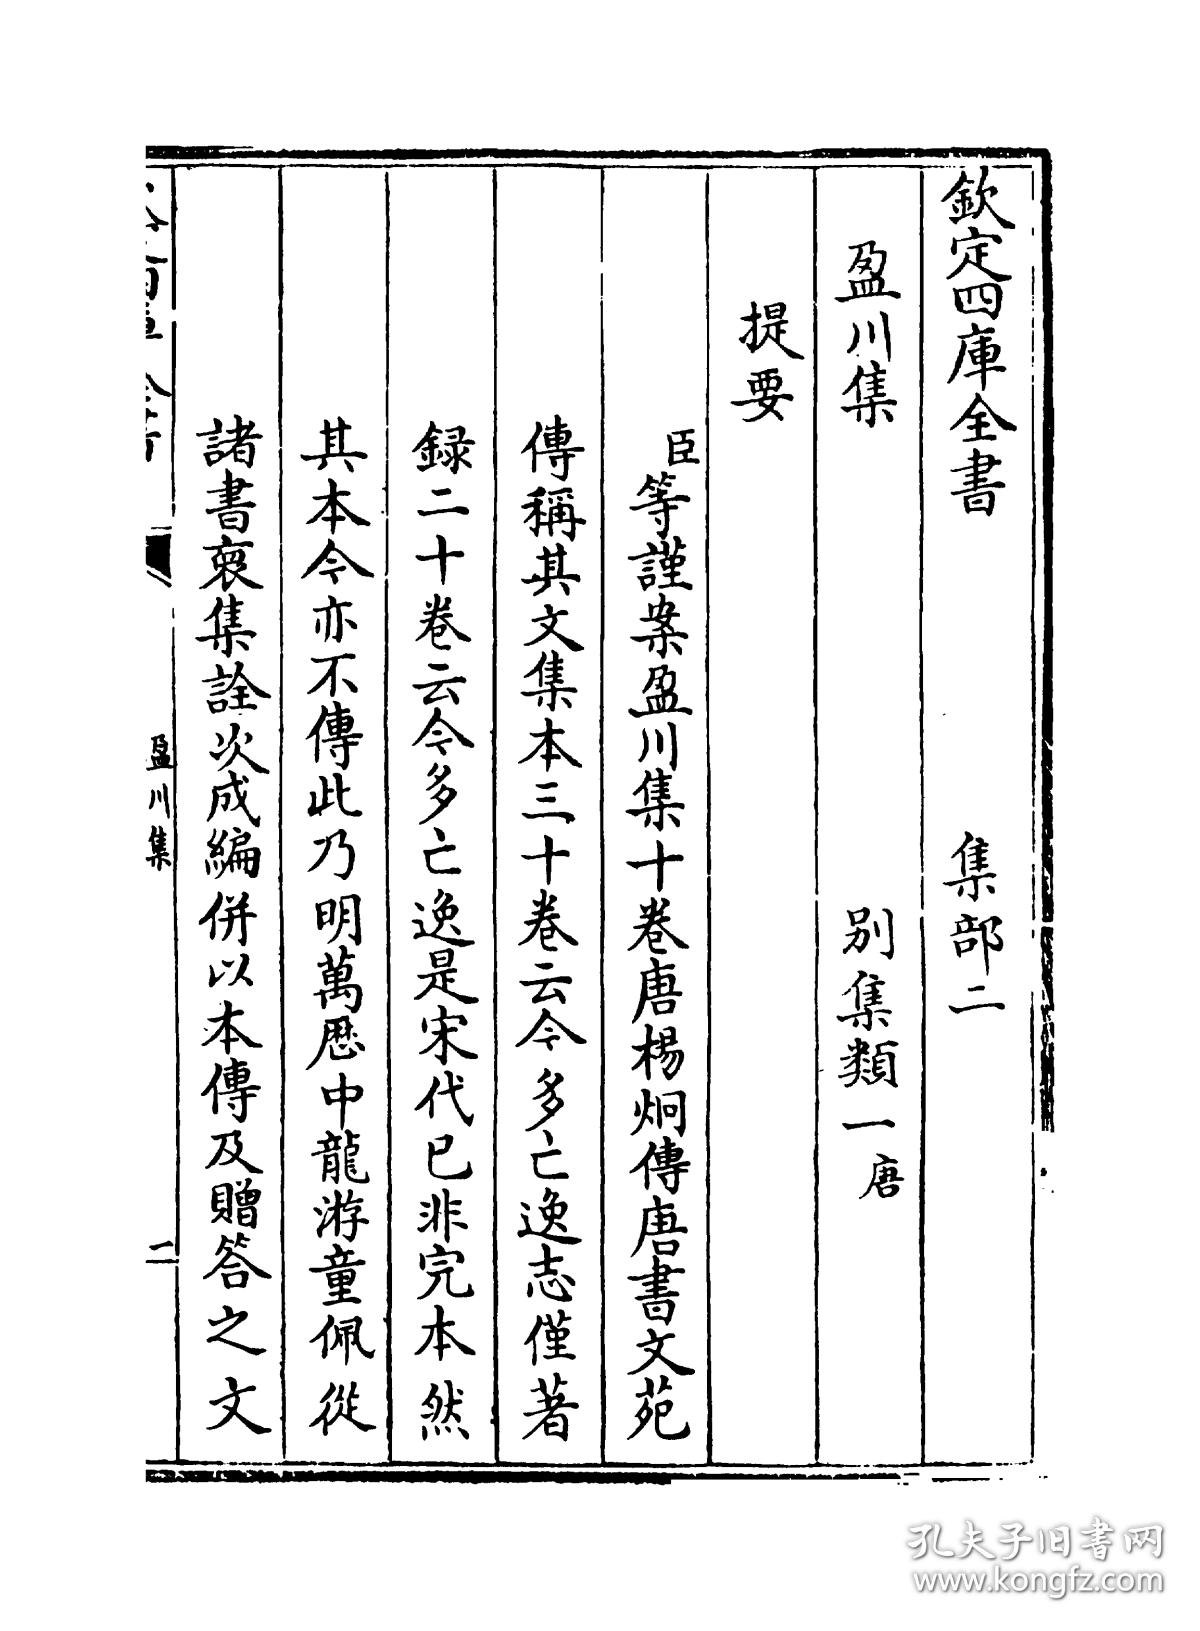 欽定四庫全書　集部二
盈川集　別集類一唐
提要
臣等謹案盈川集十卷唐楊炯傳唐書文苑
傳稱其文集本三十卷云今多亡逸志僅著
録二十卷云今多亡逸是宋代已非完本然
其本今亦不傳此乃明萬厯中龍游童佩從
諸書裒集詮次成編併以本傳及贈答之文
盈川集
孔夫子旧书网
www.kongfz.com